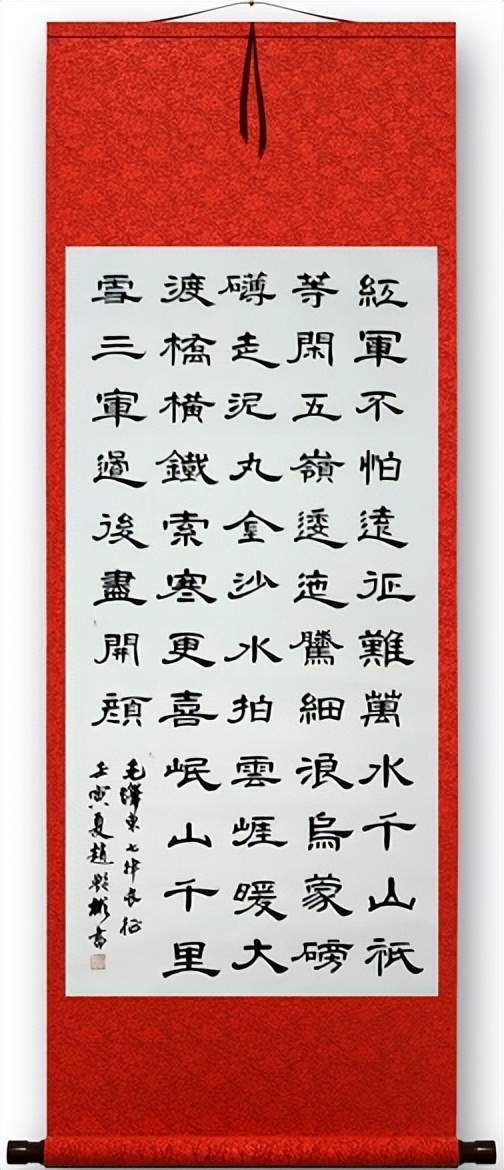 紅軍不怕遠征難萬水千山祇
等閑五嶺逶迤騰細浪烏蒙磅
礴走泥丸金沙水拍雲崕暖大
渡橋橫鐵索寒更喜岷山千里
雪三軍過後盡開顔
毛澤東七律長征
壬寅夏趙彬書